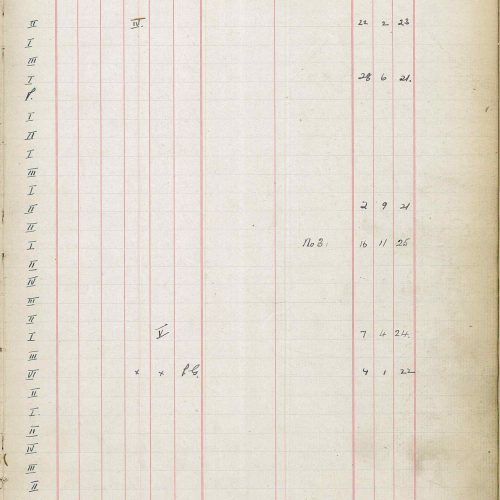 II IV. 22 2 23
I
III
I 28 6 21.
P.
I
II
I
III
I
II 2 9 21
II
I. No 3. 16 11 25
II
IV
III
II
I V 7 4 24.
III
VI x x 4 1 22
II
I.
II
IV
III
II